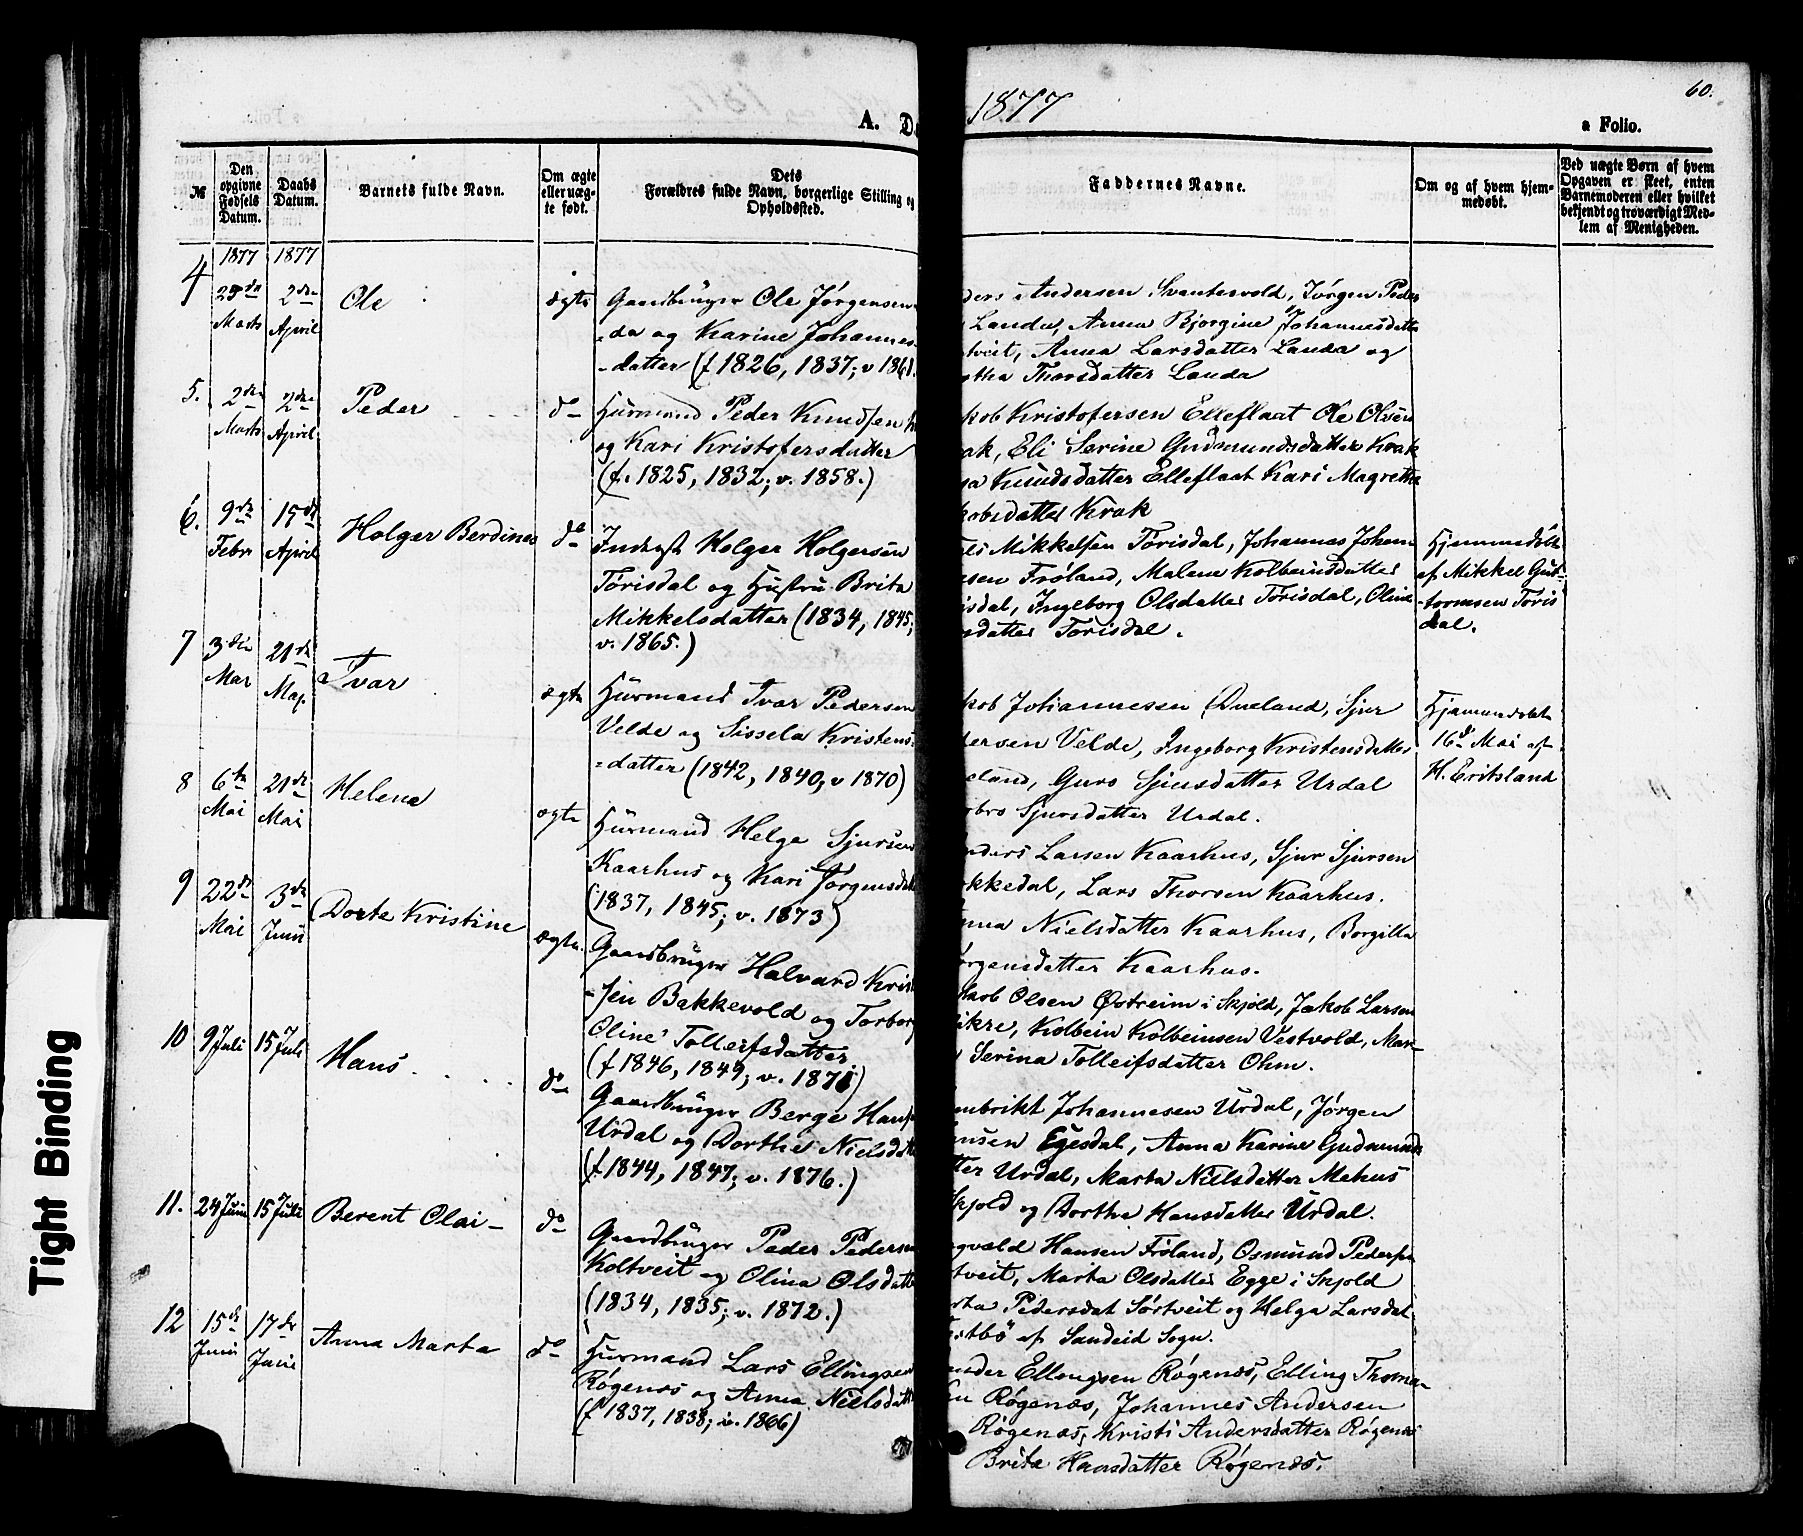 A. Da
1877
60.
a Folio.
№
Den opgivne Fødsels Datum.
Daabs Datum.
Barnets fulde Navn.
Om ægte eller uægte født.
Dets Forældres fulde Navn, borgerlige Stilling og Opholdssted.
Faddernes Navne.
Om og af hvem hjemmedøbt.
Ved uægte Børn af hvem Opgaven er skeet, enten Barnemoderen eller hvilket bekjendt og troværdigt Medlem af Menigheden.
1877 1877
4
Marts
2den April
Ole
ægte
Gaardbruger Ole Jørgensen
-da og Karine Johannes-
-datter (f 1826, 1837; v 1861.
Andersen Svantesvold, Jørgen Peder
Landa, Anna Bjorgine Johannesdatter
tveit, Anna Larsdatter Landa og
tha Thorsdatter Landa
5.
2den Marts
2den April
Peder
do
Huusmand Peder Knudsen
og Kari Kristofersdatter
(f. 1825, 1832; v. 1858.)
kob Kristofersen Elleflaat Ole Olsen
ak, Eli Serine Gudmundsdatter Krak
sa Knudsdatter Elleflaat Kari Magretha
kobsdatter Krak
6.
9de Febr
15de April
Holger Berdines
do
Inderst Holger Holgersen
Torisdal og Hustru Brita
Mikkelsdatter (1834, 1845;
v. 1865.)
els Mikkelsen Torisdal, Johannes Johan
nsen Frøland, Malene Kolbeinsdatter
isdal, Ingeborg Olsdatter Torisdal, Oline
sdatter Torisdal.
Hjemmedøbt
af Mikkel Gut-
-tormsen Toris
dal.
7
3die Mai
21de Maj.
Ivar
ægte
Huusmand Ivar Pedersen
Velde og Sissela Kristens-
-datter (1842, 1840, v 1870)
kob Johannessen Dueland, Sjur
dersen Velde, Ingeborg Kristensdatter
eland, Guro Sjursdatter Urdal
rbro Sjursdatter Urdal.
Hjemmedøbt
16d Mai af
H. Eritsland
8
6te Mai
21de Mai
Helena
ægte
Huusmand Helge Sjursen
Kaarhus og Kari Jørgensdat
(1837, 1845; v. 1873)
nders Larsen Kaarhus, Sjur Sjursen
kkedal, Lars Thorsen Kaarhus.
nna Nielsdatter Kaarhus, Borgilla
ørgensdatter Kaarhus.
9
22de Mai
3de Juni
Dorte Kristine
ægte.
Gaardbruger Halvard Krist
-sen Bakkevold og Torborg
Oline Tollefsdatter
(f 1846, 1849; v. 1871)
akob Olsen Østreim i Skjold, Jakob Larsen
ikre, Kolbein Kolbeinsen Vestvold, Mar-
Serina Tolleifsdatter Ohm.
10
9 Juli
15 Juli
Hans
do
Gaardbruger Berge Hans
Urdal og Dorthe Nielsdat
(f. 1844, 1847; v. 1876.)
mbrikt Johannesen Urdal, Jørgen
nsen Egesdal, Anna Karine Gudmunds
tter Urdal, Marta Nielsdatter Mehus
Skjold og Dorthe Hansdatter Urdal.
11.
24 Juni
15 Juli
Berent Olai -
do
Gaardbruger Peder Pederse
Koltveit og Olina Olsdatte
(1834, 1835; v. 1872.)
gvald Hansen Frøland, Osmund Peders
tveit, Marta Olsdatter Egge i Skjold
rta Pedersdat Sørtveit og Helga Larsdat
stbö af Sandeid Sogn.
12
15de Juni
17de Juni
Anna Marta
do
Huusmand Lars Ellingsen
Røgenæs og Anna Nielsdatt
(f 1837, 1838; v. 1866)
nder Ellengsen Røgenæs, Elling Thoma-
en Røgenæs, Johannes Andersen
Røgenæs, Kristi Andersdatter Røgenæs
Brita Hansdatter Røgenæs.
Tight Binding